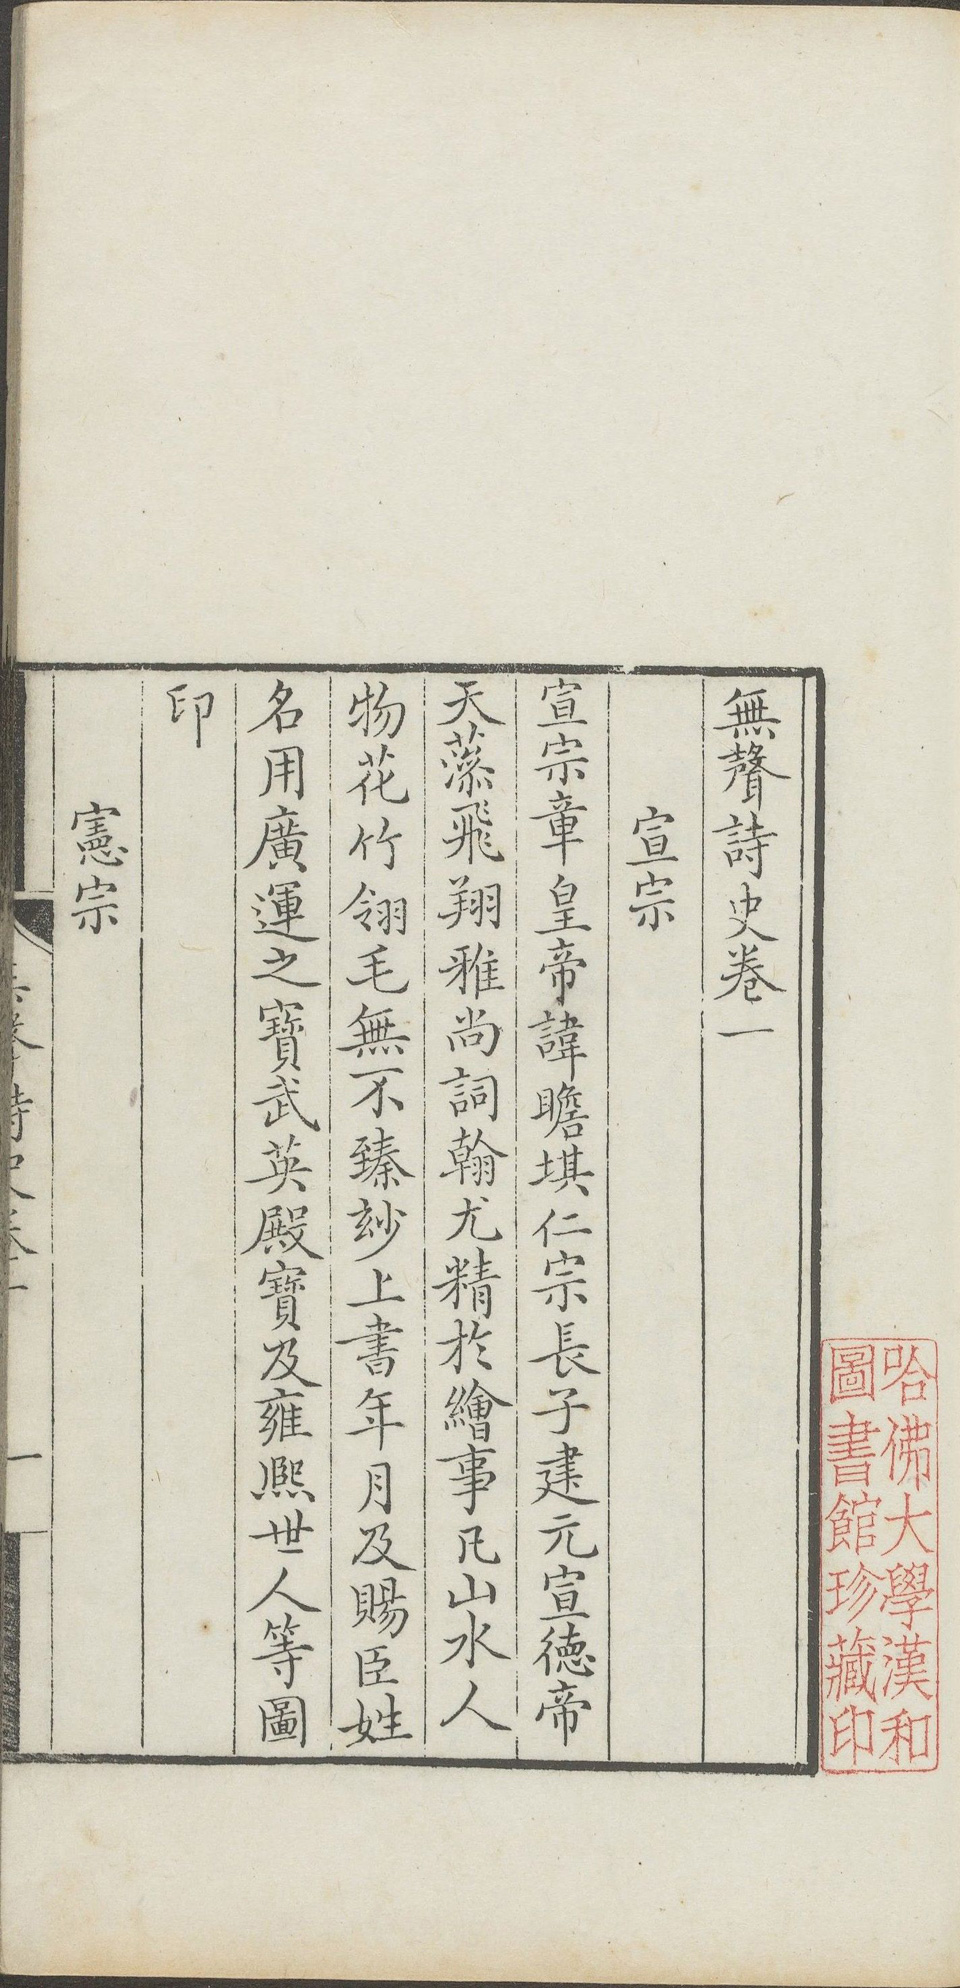 無聲詩史卷一
宣宗
宣宗章皇帝諱瞻基仁宗長子建元宣徳帝
天藻飛翔雅尚詞翰尤精於繪事凡山水人
物花竹翎毛無不臻玅上書年月及賜臣姓
名用廣運之寶武英殿寶及雍熈世人等圖
印
憲宗
無聲詩史卷一
一
哈佛大學漢和
圖書館珍藏印